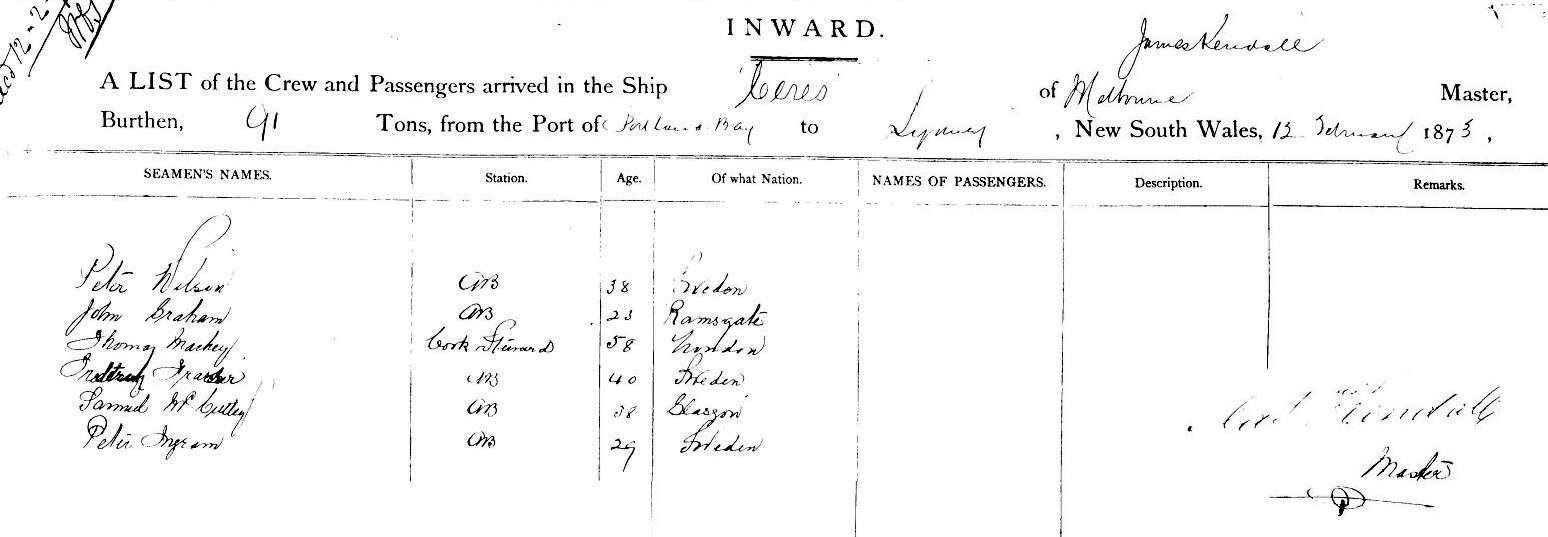 INWARD.
James Kendall
A LIST of the Crew and Passengers arrived in the Ship "Ceres" of Melbourne Master,
Burthen, 91 Tons, from the Port of Portland Bay to Sydney, New South Wales, 12 February 1873,
SEAMEN'S NAMES. Station. Age. Of what Nation. NAMES OF PASSENGERS. Description. Remarks.
Peter Wilson AB 38 Swedon
John Graham AB 23 Ramsgate
Thomas Mackey Cook Steward 58 London
AB 40 Sweden
Samuel AB 38 Glasgow
Peter Ingram AB 29 Sweden
Kendall
Master